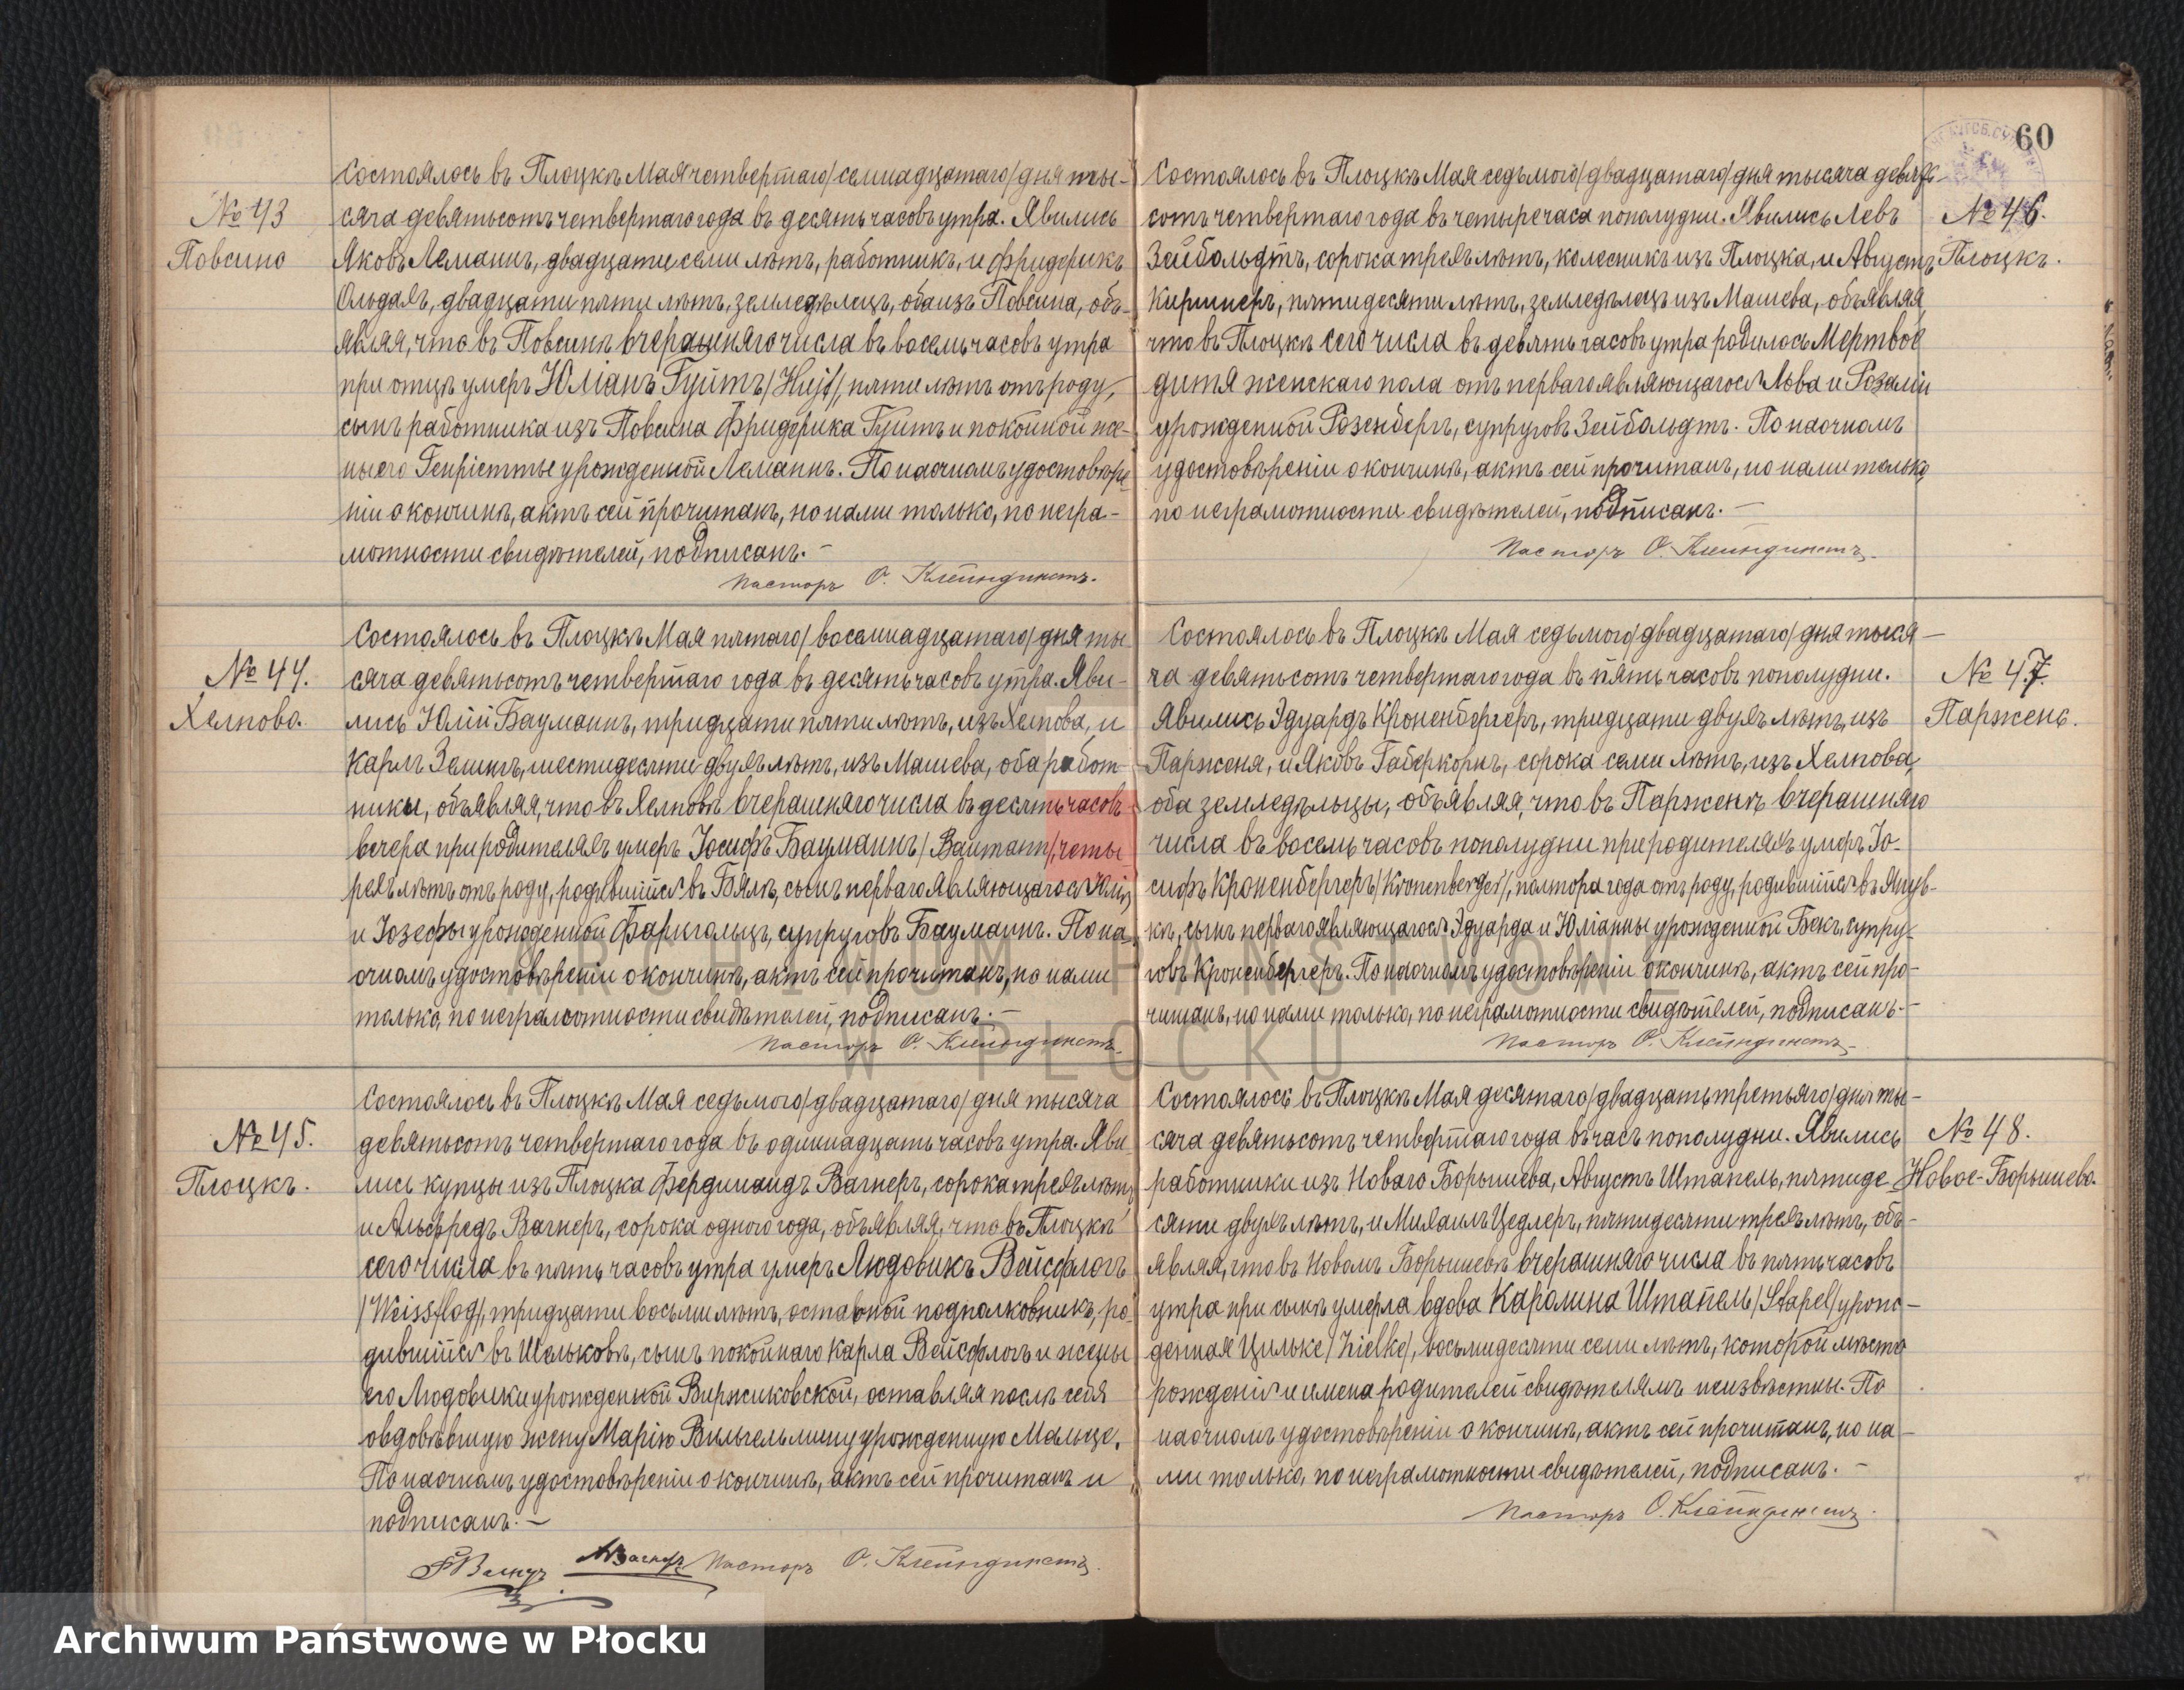 № 43
Повсино
Состоялось въ Плоцкѣ Мая четвертаго/семнадцатаго/дня ты-
сяча девятьсотъ четвертаго года въ десять часовъ утра. Явились
Яковъ Леманнъ, двадцати семи лѣтъ, работникъ, и Фридерикъ
двадцати пяти лѣтъ, земледѣлецъ, оба изъ Повсина, объ-
являя, что въ Повсинѣ вчерашняго числа въ восемь часовъ утра
при отцѣ умеръ Юліанъ Гуйтъ/Hujt/, пяти лѣтъ отъ роду,
сынъ работника изъ Повсина Фридерика Гуйтъ и покойной же-
ны его Генріетты урожденной Леманнъ. По наочномъ удостовѣре-
ніи о кончинѣ, актъ сей прочитанъ, но нами только, по негра-
мотности свидѣтелей, подписанъ. –
Пасторъ О. Клейндинстъ.
№ 44.
Хелпово.
Состоялось въ Плоцкѣ Мая пятаго/восемнадцатаго/дня ты-
сяча девятьсотъ четвертаго года въ десять часовъ утра. Яви-
лись Юлій Бауманнъ, тридцати пяти лѣтъ, изъ Хелпова, и
Карлъ Зелингъ, шестидесяти двухъ лѣтъ, изъ Машева, оба работ-
ники, объявляя, что въ Хелповѣ вчерашняго числа въ десять часовъ
вечера при родителяхъ умеръ Іосифъ Бауманнъ/Baumann/, четы-
рехъ лѣтъ отъ роду, родившійся въ Бялѣ, сынъ перваго являющагося Юлія
и Іозефы урожденной Фаригольцъ, супруговъ Бауманнъ. По на-
очномъ удостовѣреніи о кончинѣ, актъ сей прочитанъ, но нами
только, по неграмотности свидѣтелей, подписанъ. –
Пасторъ О. Клейндинстъ.
№ 45.
Плоцкъ.
Состоялось въ Плоцкѣ Мая седьмого/двадцатаго/дня тысяча
девятьсотъ четвертаго года въ одиннадцать часовъ утра. Яви-
лись купцы изъ Плоцка Фердинандъ Вагнеръ, сорока трехъ лѣтъ,
и Альфредъ Вагнеръ, сорока одного года, объявляя, что въ Плоцкѣ
сего числа въ пять часовъ утра умеръ Людовикъ Вейсфлогъ
/Weissflog/, тридцати восьми лѣтъ, отставной подполковникъ, ро-
дившійся въ Шельковѣ, сынъ покойнаго Карла Вейсфлогъ и жены
его Людовики урожденной Виржиковской, оставляя послѣ себя
овдовѣвшую жену Марію Вильгельмину урожденную Мальце.
По наочномъ удостовѣреніи о кончинѣ, актъ сей прочитанъ и
подписанъ. –
Ф Вагнеръ А Вагнеръ Пасторъ О. Клейндинстъ.
60
№ 46.
Плоцкъ.
Состоялось въ Плоцкѣ Мая седьмого/двадцатаго/дня тысяча девять-
сотъ четвертаго года въ четыре часа пополудни. Явились Левъ
Зейбольдтъ, сорока трехъ лѣтъ, колесникъ изъ Плоцка, и Августъ
Киршнеръ, пятидесяти лѣтъ, земледѣлецъ изъ Машева, объявляя,
что въ Плоцкѣ сего числа въ девять часовъ утра родилось Мертвое
дитя женскаго пола отъ перваго являющагося Льва и Розаліи
урожденной Розенбергъ, супруговъ Зейбольдтъ. По наочномъ
удостовѣреніи о кончинѣ, актъ сей прочитанъ, но нами только,
по неграмотности свидѣтелей, подписанъ. –
Пасторъ О. Клейндинстъ.
№ 47.
Парженъ.
Состоялось въ Плоцкѣ Мая седьмого/двадцатаго/дня тыся-
ча девятьсотъ четвертаго года въ пять часовъ пополудни.
Явились Эдуардъ Кроненбергеръ, тридцати двухъ лѣтъ, изъ
Парженя, и Яковъ Габеркорнъ, сорока семи лѣтъ, изъ Хелпова,
оба земледѣльцы, объявляя, что въ Парженѣ вчерашняго
числа въ восемь часовъ пополудни при родителяхъ умеръ Іо-
сифъ Кроненбергеръ/Kronenberger/, полтора года отъ роду, родившійся въ Янув-
кѣ, сынъ перваго являющагося Эдуарда и Юліанны урожденной Бекъ, супру-
говъ Кроненбергеръ. По наочномъ удостовѣреніи о кончинѣ, актъ сей про-
читанъ, но нами только, по неграмотности свидѣтелей, подписанъ. –
Пасторъ О. Клейндинстъ.
№ 48.
Новое-Борышево.
Состоялось въ Плоцкѣ Мая десятаго/двадцать третьяго/дня ты-
сяча девятьсотъ четвертаго года въ часъ пополудни. Явились
работники изъ Новаго Борышева, Августъ Штапель, пятиде-
сяти двухъ лѣтъ, и Михаилъ Цедлеръ, пятидесяти трехъ лѣтъ, объ-
являя, что въ Новомъ Борышевѣ вчерашняго числа въ пять часовъ
утра при сынѣ умерла вдова Каролина Штапель/Stapel/урож-
денная Цильке/Zielke/, восьмидесяти семи лѣтъ, которой мѣсто
рожденія и имена родителей свидѣтелямъ неизвѣстны. По
наочномъ удостовѣреніи о кончинѣ, актъ сей прочитанъ, но на-
ми только, по неграмотности свидѣтелей, подписанъ. –
Пасторъ О. Клейндинстъ.
ARCHIWUM PAŃSTWOWE
W PŁOCKU
Archiwum Państwowe w Płocku